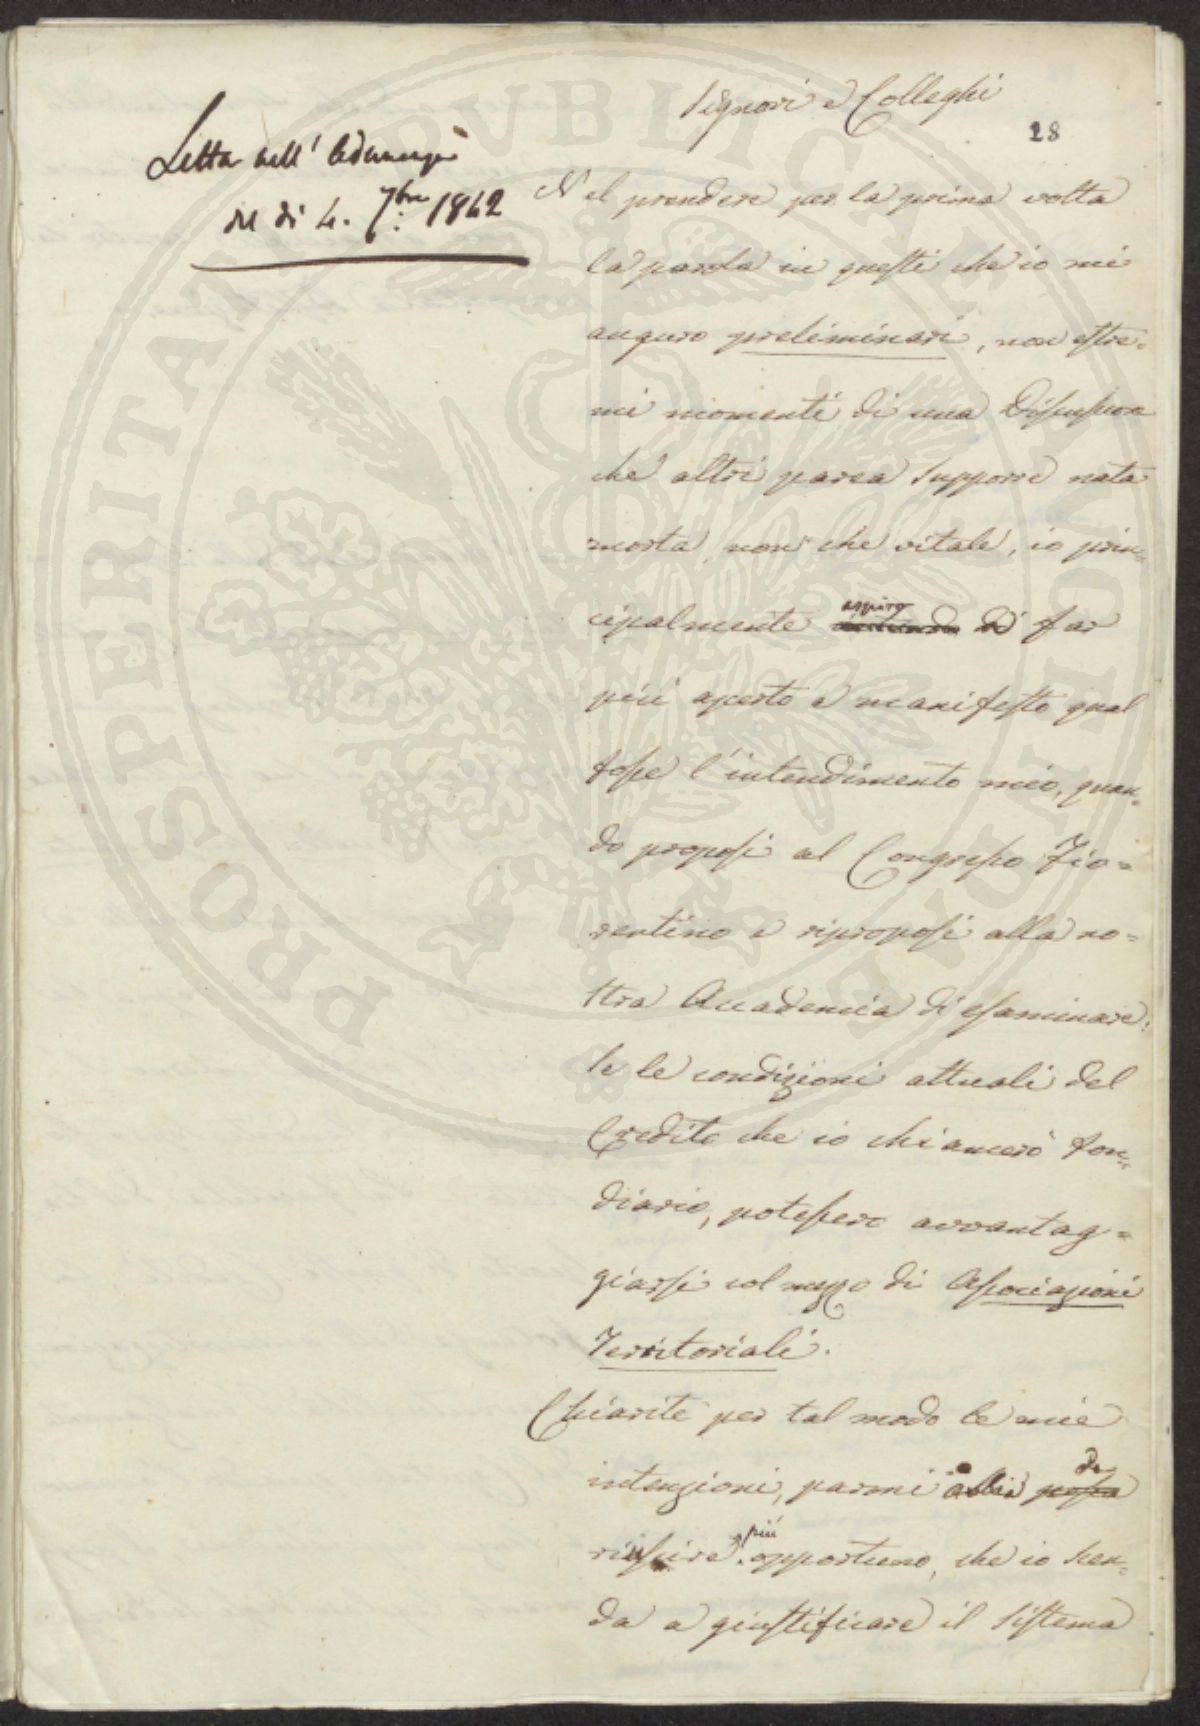 Signori e Colleghi
28
Letta nell' Adunanza
del dì 4. 7bre 1842
Nel prendere per la prima volta
la parola in questi che io mi
auguro preliminari, non estre=
mi momenti di una Discussione
che altri parea supporre nata
morta, non che vitale, io prin=
cipalmente aspiro intendo di far
più aperto e manifesto qual
fosse l'intendimento mio, quan=
do proposi al Congresso Fio=
rentino e riproposi alla no=
stra Accademia di esaminare:
se le condizioni attuali del
Credito che io chiamerò fon=
diario, potessero avvantag=
giarsi col mezzo di Associazioni
Territoriali.
Chiarite per tal modo le mie
intenzioni, parmi abbia possa da
riuscire più opportuno, che io scen=
da a giustificare il sistema
PROSPERITATI PVBLICAE AVGENDAE